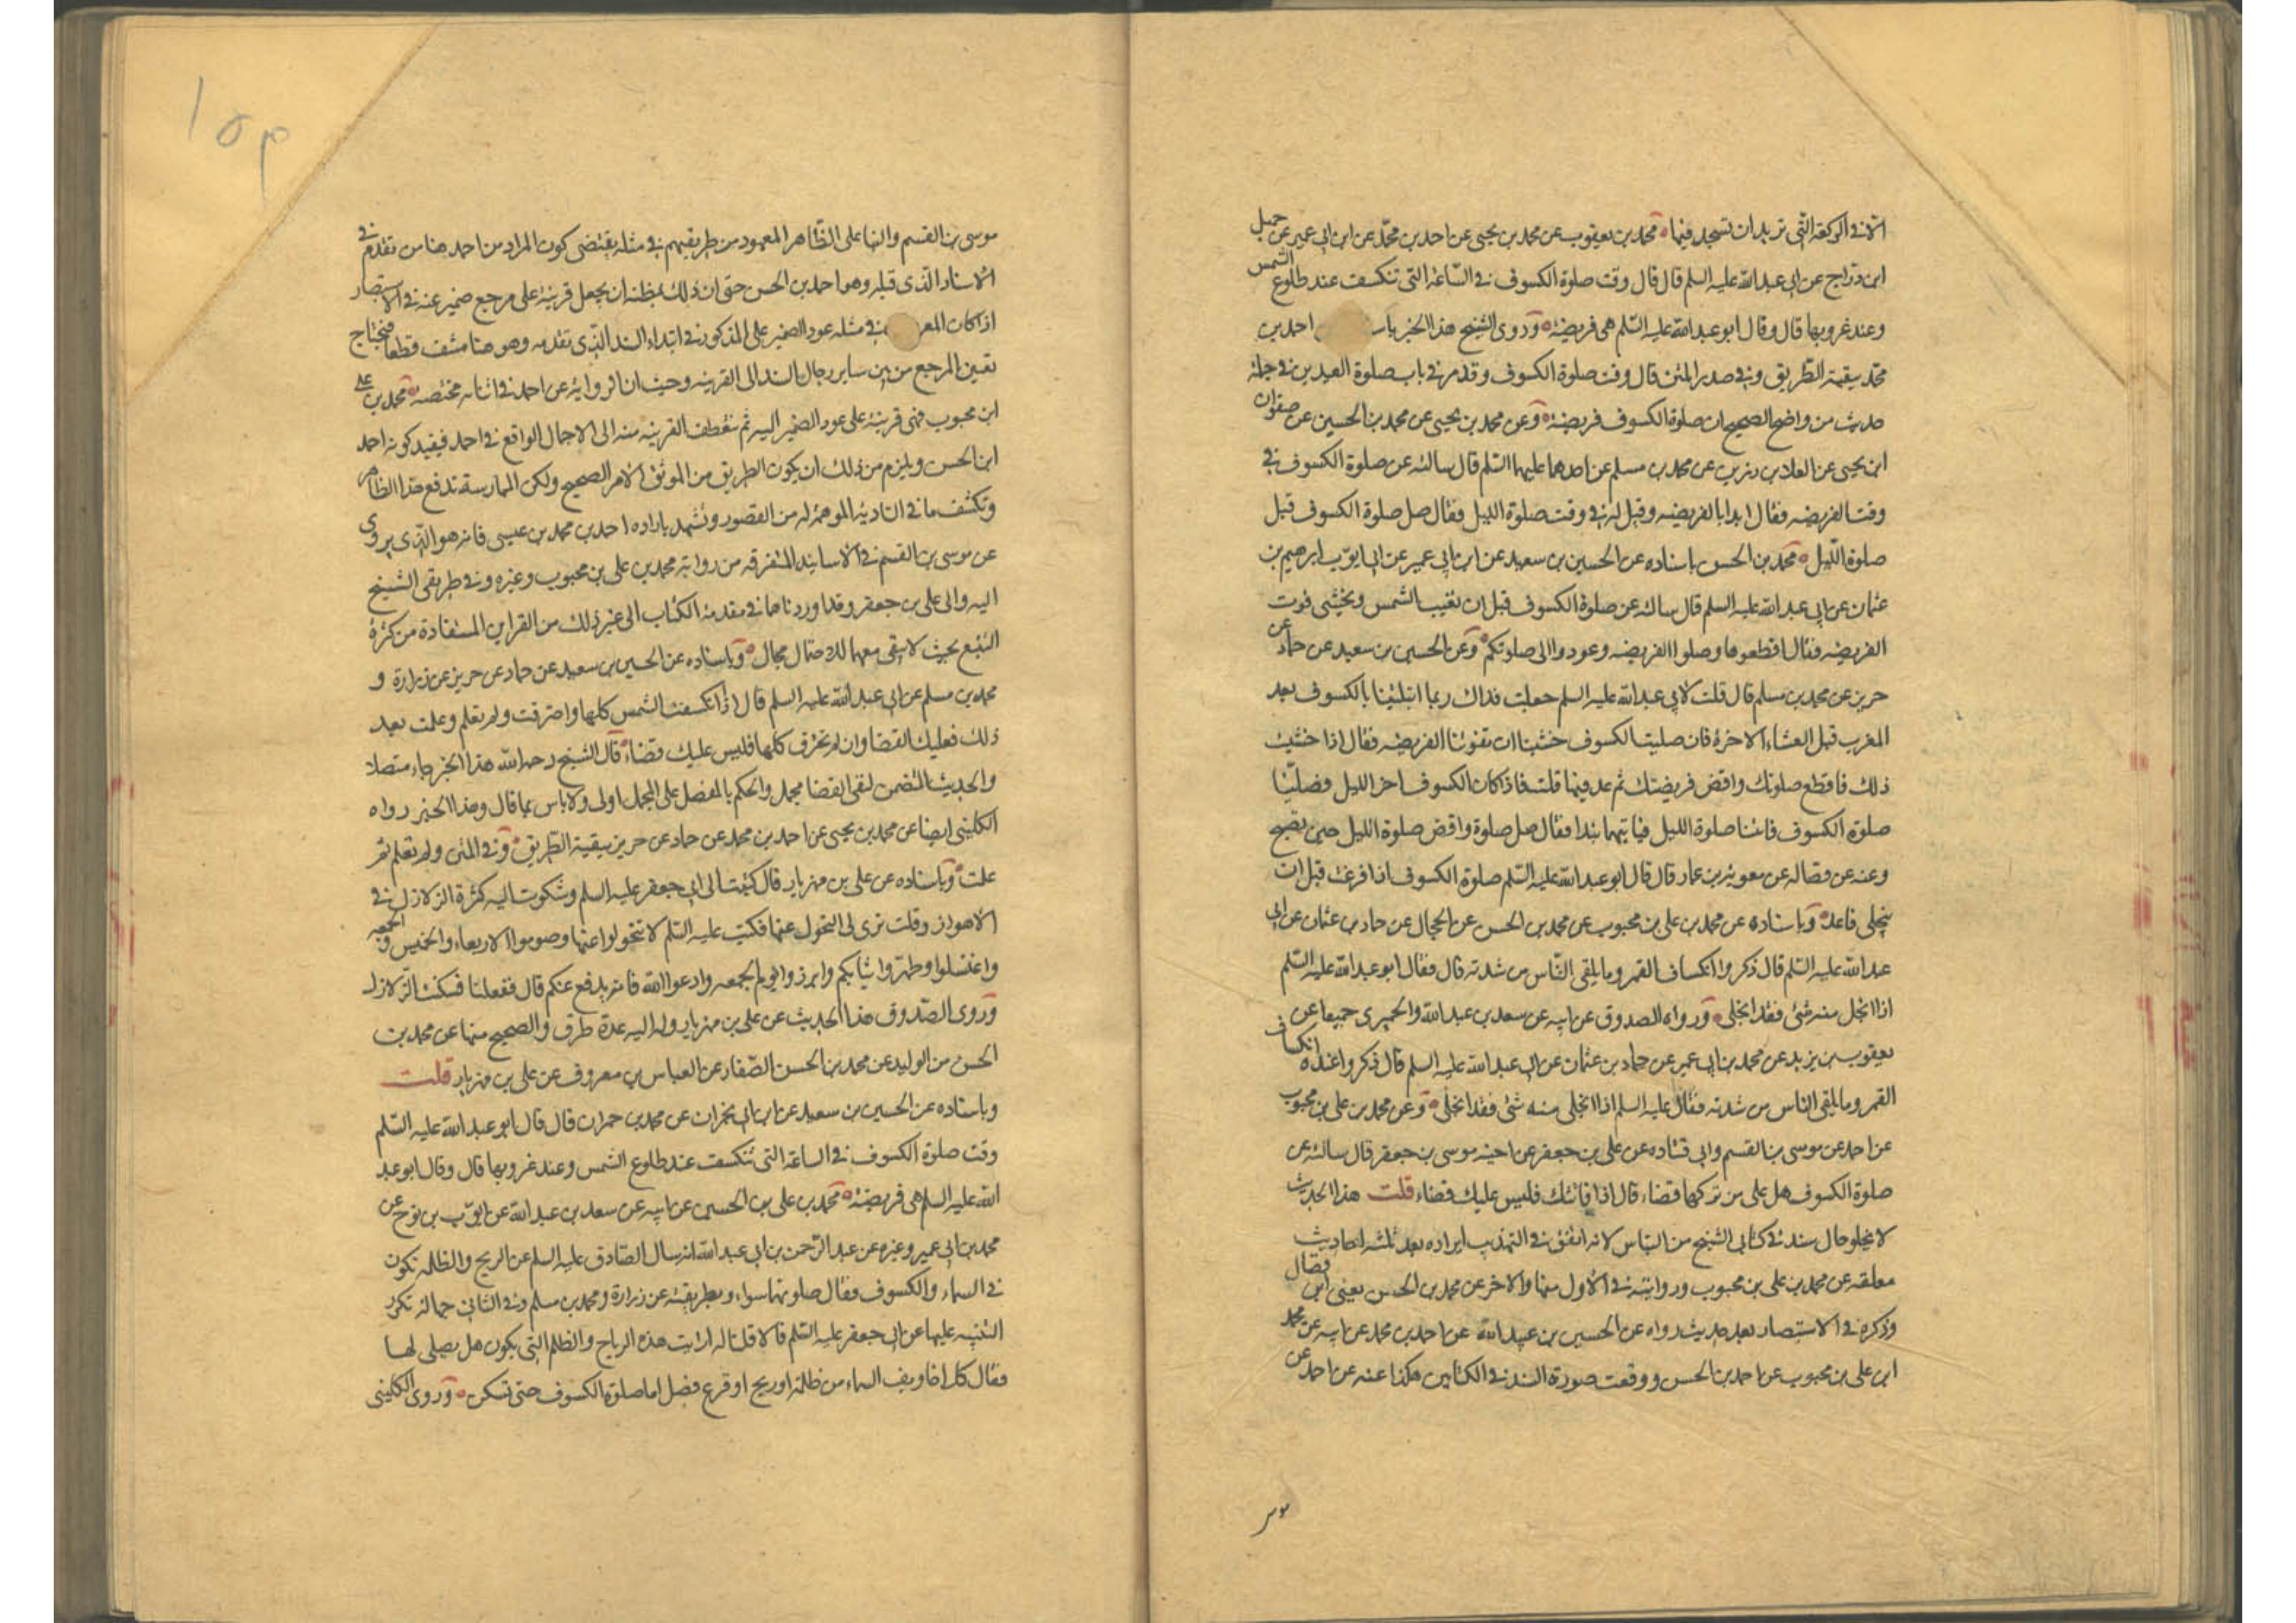 الا في الركعة التي تريد ان تسجد فيها محمد بن يعقوب عن محمد بن يحيى عن احمد بن محمد عن ابن ابي عمير عن جميل
ابن دراج عن ابي عبد الله عليه السلم قال قال وقت صلوة الكسوف في الساعة التي تنكسف عند طلوع الشمس
وعند غروبها قال وقال ابو عبد الله عليه السلم هي فريضة وروى الشيخ هذا الخبر باسـ احمد بن
محمد ببقية الطريق وفي صدر المتن قال وقت صلوة الكسوف وقد مر في باب صلوة العيدين في جملة
حديث من واضح الصحيح ان صلوة الكسوف فريضة وعن محمد بن يحيى عن محمد بن الحسين عن صفوان
ابن يحيى عن العلا بن رزين عن محمد بن مسلم عن احدهما عليهما السلم قال سالته عن صلوة الكسوف في
وقت الفريضه فقال ابدا بالفريضه وقيل له في وقت صلوة الليل فقال صل صلوة الكسوف قبل
صلوة الليل محمد بن الحسن باسناده عن الحسين بن سعيد عن ابن ابي عمير عن ابي ايوب ابرهيم بن
عثمان عن ابي عبد الله عليه السلم قال سالته عن صلوة الكسوف قبل ان تغيب الشمس ويخشى فوت
الفريضه فقال اقطعوها وصلوا الفريضه وعودوا الى صلوتكم وعن الحسين بن سعيد عن حماد عن
حريز عن محمد بن مسلم قال قلت لابي عبد الله عليه السلم جعلت فداك ربما ابتلينا بالكسوف بعد
المغرب قبل العشاء الاخرة فان صليت الكسوف خشينا ان تفوتنا الفريضه فقال اذا خشيت
ذلك فاقطع صلوتك واقض فريضتك ثم عد فيها قلت فاذا كان الكسوف اخر الليل فصلينا
صلوة الكسوف فاتتنا صلوة الليل فبايتهما نبدا فقال صل صلوة واقض صلوة الليل حين تصبح
وعنه عن فضاله عن معوية بن عمار قال قال ابو عبد الله عليه السلم صلوة الكسوف اذا فرغت قبل ان
ينجلي فاعد وباسناده عن محمد بن علي بن محبوب عن محمد بن الحسن عن الحجال عن حماد بن عثمان عن ابي
عبد الله عليه السلم قال ذكروا انكساف القمر وما يلقى الناس من شدته قال فقال ابو عبد الله عليه السلم
اذا انجلى منه شئ فقد انجلى ورواه الصدوق عن ابيه عن سعد بن عبد الله والحميري جميعا عن
يعقوب بن يزيد عن محمد بن ابي عمير عن حماد بن عثمان عن ابي عبد الله عليه السلم قال ذكروا عنده انكساف
القمر وما يلقى الناس من شدته فقال عليه السلم اذا انجلى منه شئ فقد انجلى وعن محمد بن علي بن محبوب
عن احمد عن موسى بن القسم وابي قتاده عن علي بن جعفر عن اخيه موسى بن جعفر قال سالته عن
صلوة الكسوف هل على من تركها قضاء قال اذا فاتتك فليس عليك قضاء قلت هذا الحديث
لا يخلو حال سنده في كتابي الشيخ من التباس لانه اتفق في التهذيب ايراده بعد ثلثه احاديث
معلقه عن محمد بن علي بن محبوب وروايته في الاول منها والاخر عن محمد بن الحسن يعني ابن فضال
وذكره في الاستبصار بعد حديث رواه عن الحسين بن عبيد الله عن احمد بن محمد عن ابيه عن محمد
ابن علي بن محبوب عن احمد بن الحسن ووقعت صورة السند في الكتابين هكذا عنه عن احمد عن
موسى بن القسم والبنا على الظاهر المعهود من طريقتهم في مثله يقتضي كون المراد من احمد هنا من تقدم في
الاسناد الذي قبله وهو احمد بن الحسن حتى ان ذلك بمظنه ان يجعل قرينة على مرجع ضمير عنه في الاستبصار
اذ كان المعر في مثله عود الضمير على المذكور في ابتداء السند الذي تقدمه وهو هنا منتف قطعا فيحتاج
تعين المرجع من بين ساير رجال السند الى القرينه وحيث ان الرواية عن احمد في اثنائه مختصه بمحمد بن علي
ابن محبوب فهي قرينة على عود الضمير اليه ثم تنعطف القرينه منه الى الاجمال الواقع في احمد فيفيد كونه احمد
ابن الحسن ويلزم من ذلك ان يكون الطريق من الموثق لا من الصحيح ولكن الممارسة تدفع هذا الظاهر
وتكشف ما في التادية الموهمة له من القصور وتشهد بارادة احمد بن محمد بن عيسى فانه هو الذي يروي
عن موسى بن القسم في الاسانيد المتفرقه من رواية محمد بن علي بن محبوب وغيره وفي طريقي الشيخ
اليه والى علي بن جعفر وقد اوردناها في مقدمة الكتاب الى غير ذلك من القراين المستفادة من كثرة
التتبع بحيث لا يبقى معها للاحتمال مجال وباسناده عن الحسين بن سعيد عن حماد عن حريز عن زرارة و
محمد بن مسلم عن ابي عبد الله عليه السلم قال اذا انكسفت الشمس كلها واحترقت ولم تعلم وعلمت بعد
ذلك فعليك القضا وان لم تحترق كلها فليس عليك قضاء قال الشيخ رحمه الله هذا الخبر جاء متصلا
والحديث المتضمن لنفي القضا مجمل والحكم بالمفصل على المجمل اولى ولا باس بما قال وهذا الخبر رواه
الكليني ايضا عن محمد بن يحيى عن احمد بن محمد عن حماد عن حريز ببقية الطريق وفي المتن ولم تعلم ثم
علمت وباسناده عن علي بن مهزيار قال كتبت الى ابي جعفر عليه السلم وشكوت اليه كثرة الزلازل في
الاهواز وقلت ترى لي التحول عنها فكتب عليه السلم لا تتحولوا عنها وصوموا الاربعاء والخميس والجمعه
واغتسلوا وطهروا ثيابكم وابرزوا يوم الجمعه وادعوا الله فانه يدفع عنكم قال ففعلنا فسكنت الزلازل
وروى الصدوق هذا الحديث عن علي بن مهزيار وله اليه عدة طرق والصحيح منها عن محمد بن
الحسن بن الوليد عن محمد بن الحسن الصفار عن العباس بن معروف عن علي بن مهزيار قلت
وباسناده عن الحسين بن سعيد عن ابن ابي نجران عن محمد بن حمران قال قال ابو عبد الله عليه السلم
وقت صلوة الكسوف في الساعة التي تنكسف عند طلوع الشمس وعند غروبها قال وقال ابو عبد
الله عليه السلم هي فريضة محمد بن علي بن الحسين عن ابيه عن سعد بن عبد الله عن ايوب بن نوح عن
محمد بن ابي عمير وغيره عن عبد الرحمن بن ابي عبد الله انه سال الصادق عليه السلم عن الريح والظلمه تكون
في السماء والكسوف فقال صلوتهما سواء وبطريقته عن زرارة ومحمد بن مسلم وفي الثاني جهالة تكرر
التنبيه عليها عن ابي جعفر عليه السلم قالا قلنا له ارايت هذه الرياح والظلم التي يكون هل يصلي لها
فقال كل اخاويف السماء من ظلمة او ريح او فزع فصل لها صلوة الكسوف حتى تسكن وروى الكليني